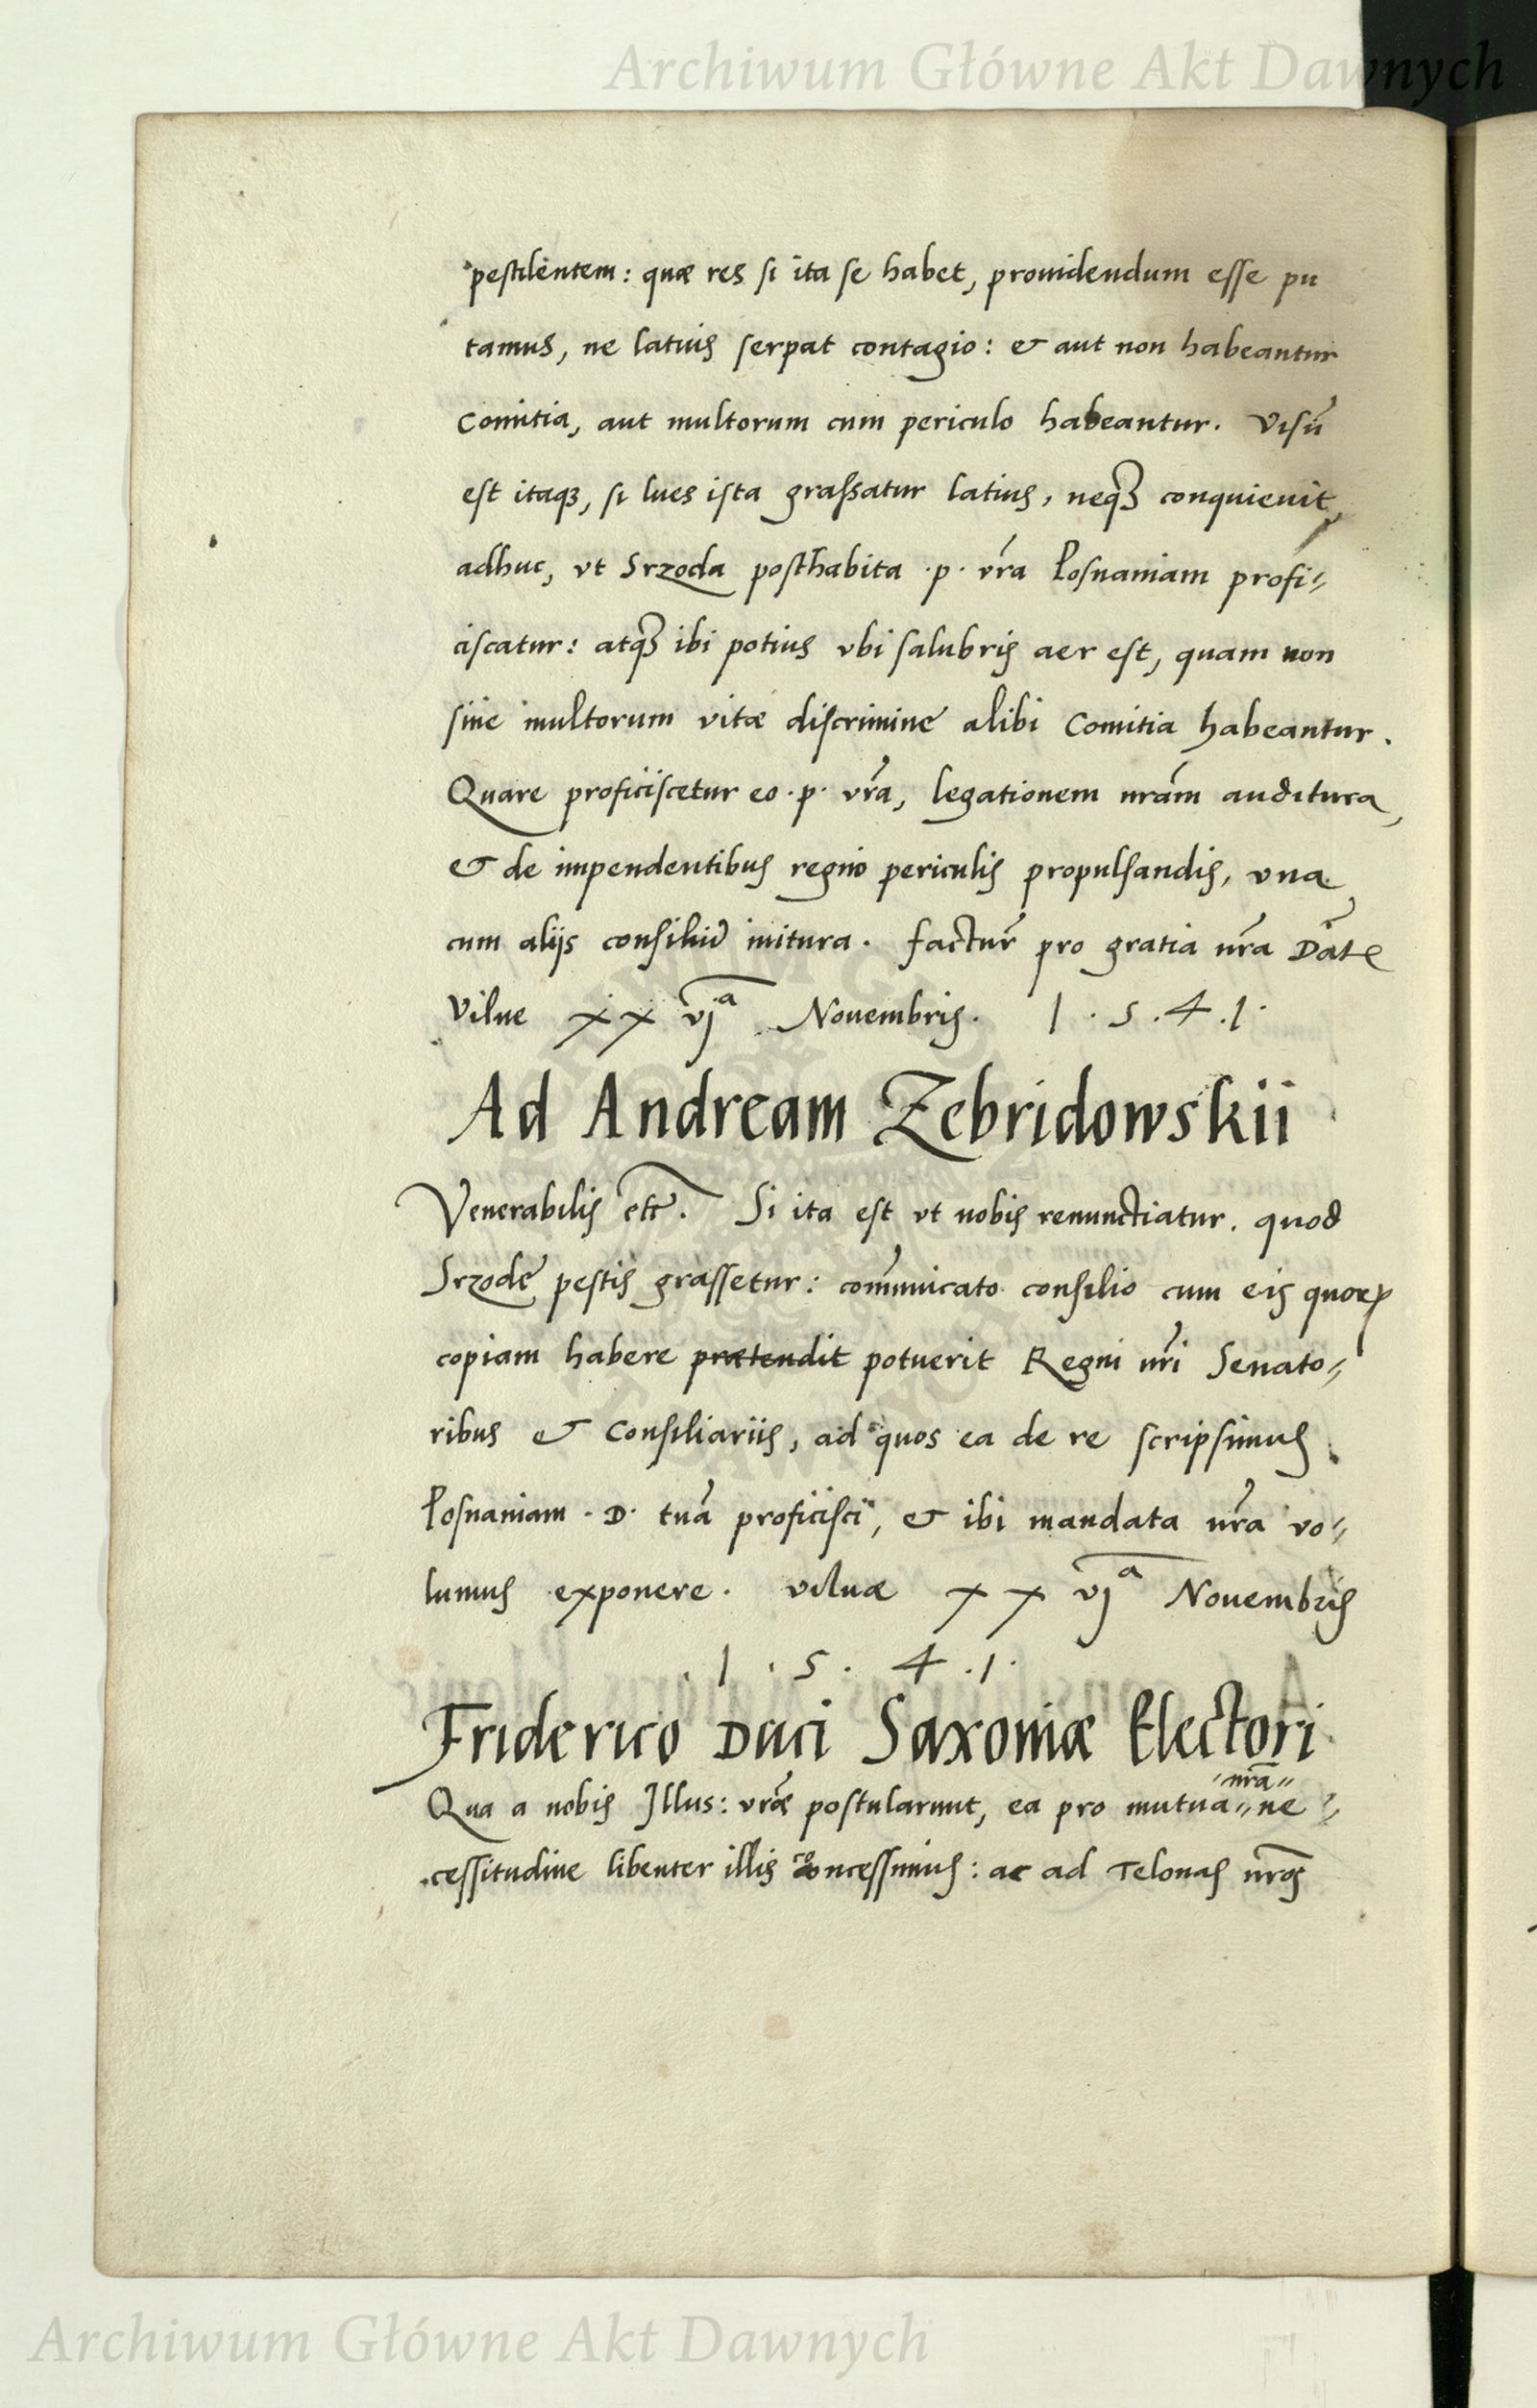 Archiwum Główne Akt Dawnych
pestilentem: quæ res si ita se habet, prouidendum esse pu
tamus, ne latius serpat contagio: & aut non habeantur
Comitia, aut multorum cum periculo habeantur. Visū
est itaqȝ, si lues ista grassatur latius, neqȝ conquieuit,
adhuc, vt Srzoda posthabita .p. vr̃a Posnaniam profi=
ciscatur: atqȝ ibi potius vbi salubris aer est, quam non
sine multorum vitæ discrimine alibi Comitia habeantur.
Quare proficiscetur eo .p. vr̃a, legationem nr̃am auditura,
& de impendentibus regno periculis propulsandis, vna
cum alijs consiliũ initura. factur̃ pro gratia nr̃a Dat̃
Vilne xx vjᵃ Nouembris. 1.5.4.1.
Ad Andream Zebridowskii
Venerabilis etc̃. Si ita est vt nobis renunctiatur. quod
Srzode pestis grassetur: com̃unicato consilio cum eis quoꝝ
copiam habere prætendit potuerit Regni nr̃i Senato=
ribus & Consiliariis, ad quos ea de re scripsimus
Posnaniam .D. tuã proficisci, & ibi mandata nr̃a vo=
lumus exponere. vilnæ xx vjᵃ Nouembris
.1.5.4.1.
Friderico Duci Saxoniæ Electori
nr̃a
Qua a nobis Illus: vr̃æ postularunt, ea pro mutua ne=
cessitudine libenter illis concessimus: ac ad Telonas nr̃os
Archiwum Główne Akt Dawnych